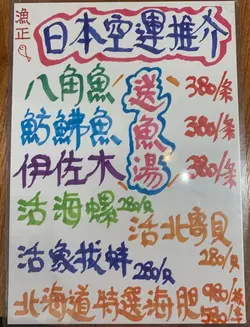 漁正
日本空運推介
八角魚 380/条
魴鮄魚 380/条
伊佐木 380/条
送魚湯
活海螺 280/只
活北寄貝 280/只
活象拔蚌 280/只
北海道特選海胆 980/板